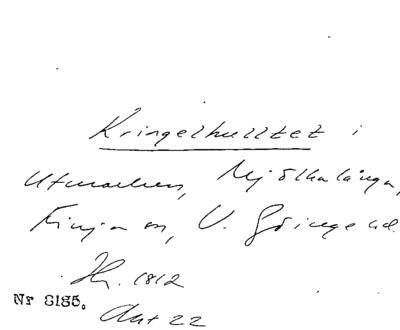 Kringelhulltet i
Utmarken, Mjölkalånga,
Finja sn, V. Göinge hd.
Hr. 1812
Nr 8185.
Akt 22